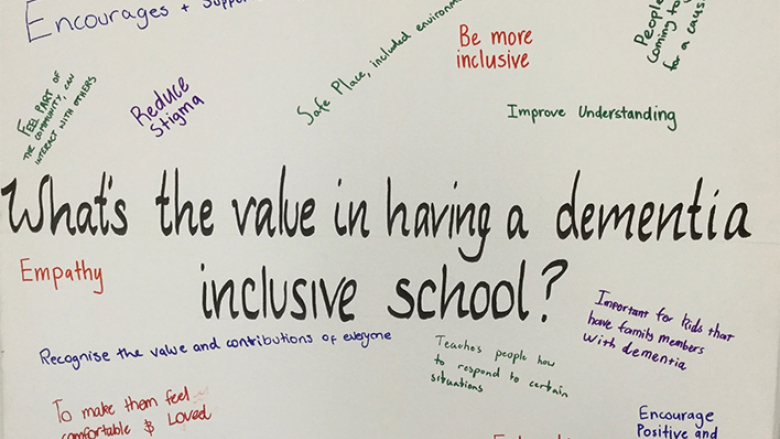 Encourages + Support
Safe Place, included environm
Be more
inclusive
People
coming to
for a caus
FEEL PART OF
THE COMMUNITY, CAN
INTERACT WITH OTHERS
Reduce
Stigma
Improve Understanding
What's the value in having a dementia
inclusive school?
Empathy
Important for kids that
have family members
with dementia
Recognise the value and contributions of everyone
Teaches people how
to respond to certain
situations
To make them feel
comfortable & Loved
Encourage
Positive and